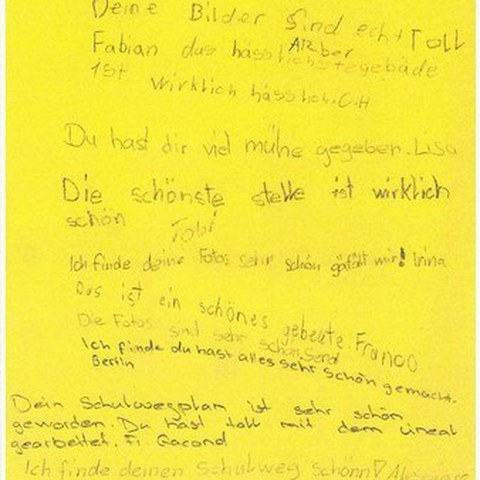 Deine Bilder Sind echt Toll
Fabian das hässlichstegebäde
Aber
ist
wirklich hässlich. C.H
Du hast dir viel mühe gegeben. Lisa
Die schönste stelle ist wirklich
schön
Tobi
Ich finde deine Fotos sehr schön gefällt mir! Irina
Das ist ein schönes gebeute. Franco
Die Fotos sind sehr schön.
Ich finde du hast alles sehr schön gemacht.
Berlin
Dein Schulwegplan ist sehr schön
geworden. Du hast toll mit dem Lineal
gearbeitet. Fr. Gacond
Ich finde deinen Schulweg schönn!